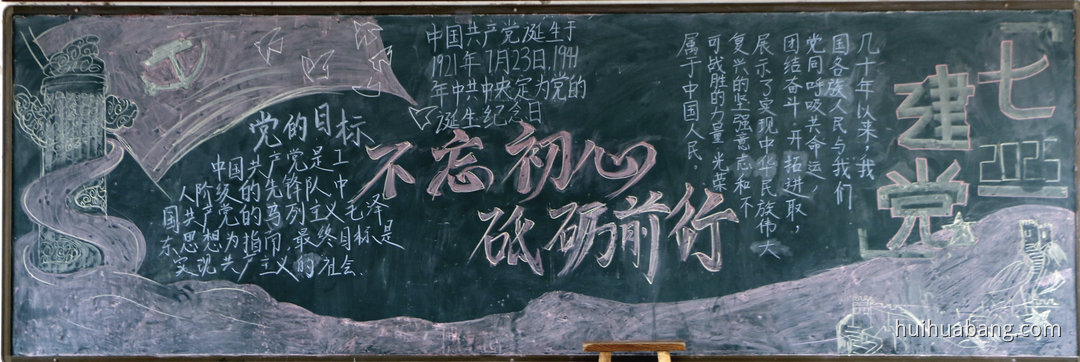 中国共产党诞生于
1921年7月23日,1941
年中共中央定为党的
诞生纪念日
党的目标
中国共产党是工
人阶级的先锋队,中
国共产党的马列主义毛泽
东思想为指闹,最终目标是
实现共产主义的社会.
不忘初心
砥砺前行
几十年以来,我
国各族人民与我们
党同呼吸共命运,
团结奋斗,开拓进取,
展示了实现中华民族伟大
复兴的坚强意志和不
可战胜的力量,光荣
属于中国人民。
七一
建党
huihuabang.com